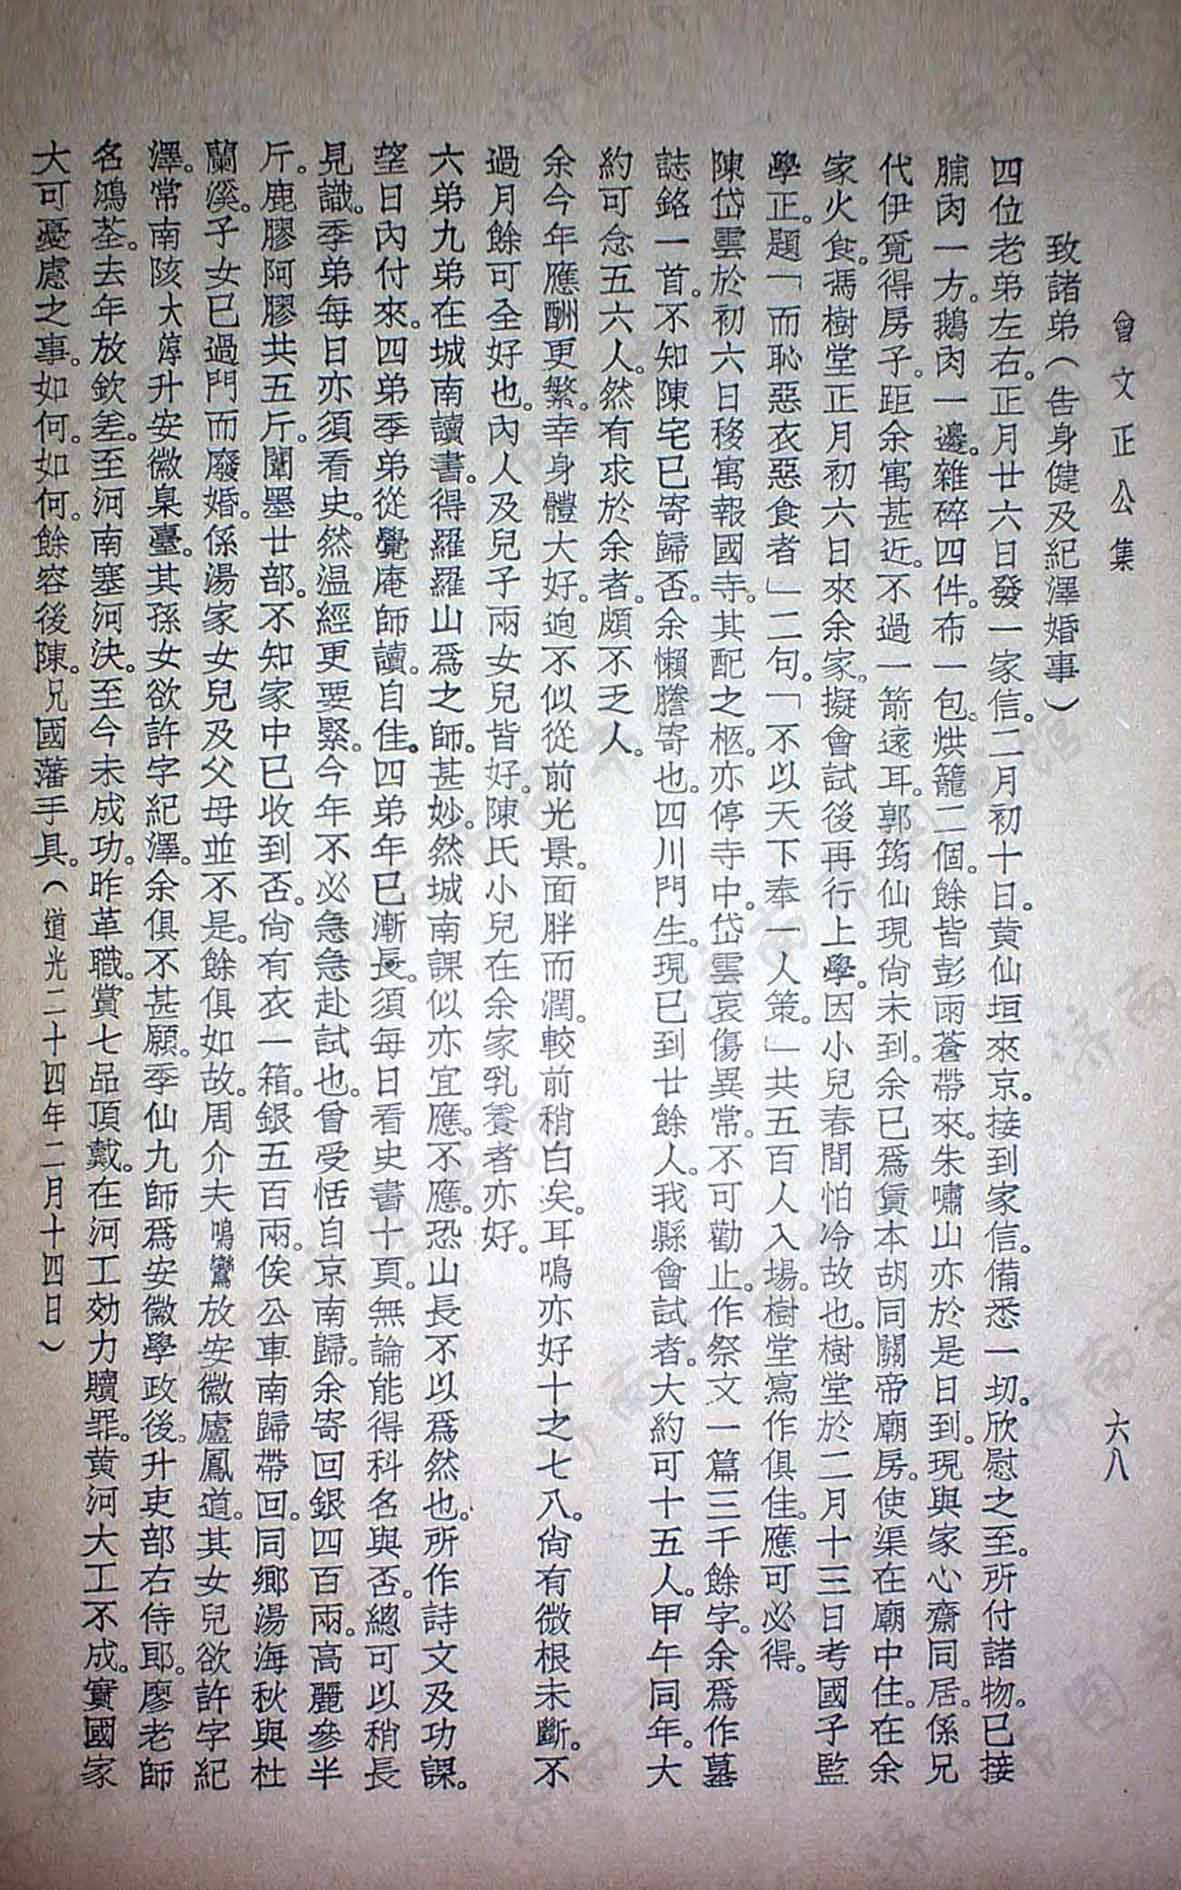 曾文正公集
六八
致諸弟（告身健及紀澤婚事）
四位老弟左右。正月廿六日發一家信。二月初十日。黃仙垣來京。接到家信。備悉一切。欣慰之至。所付諸物。已接
脯肉一方。鵝肉一邊。雜碎四件。布一包。烘籠二個。餘皆彭雨蒼帶來。朱嘯山亦於是日到。現與家心齋同居。係兄
代伊覓得房子。距余寓甚近。不過一箭遠耳。郭筠仙現尙未到。余已爲賃本胡同關帝廟房。使渠在廟中住。在余
家火食。馮樹堂正月初六日來余家。擬會試後再行上學。因小兒春間怕冷故也。樹堂於二月十三日考國子監
學正。題「而恥惡衣惡食者」二句。「不以天下奉一人策。」共五百人入場。樹堂寫作俱佳。應可必得。
陳岱雲於初六日移寓報國寺。其配之柩。亦停寺中。岱雲哀傷異常。不可勸止。作祭文一篇三千餘字。余爲作墓
誌銘一首。不知陳宅已寄歸否。余懶謄寄也。四川門生。現已到廿餘人。我縣會試者。大約可十五人。甲午同年。大
約可念五六人。然有求於余者。頗不乏人。
余今年應酬更繁。幸身體大好。迥不似從前光景。面胖而潤。較前稍白矣。耳鳴亦好十之七八。尙有微根未斷。不
過月餘可全好也。內人及兒子兩女兒皆好。陳氏小兒在余家乳養者亦好。
六弟九弟在城南讀書。得羅羅山爲之師。甚妙。然城南課似亦宜應。不應。恐山長不以爲然也。所作詩文及功課。
望日內付來。四弟季弟從覺庵師讀。自佳。四弟年已漸長。須每日看史書十頁。無論能得科名與否。總可以稍長
見識。季弟每日亦須看史。然温經更要緊。今年不必急急赴試也。曾受恬自京南歸。余寄回銀四百兩。高麗參半
斤。鹿膠阿膠共五斤。闈墨廿部。不知家中已收到否。尙有衣一箱。銀五百兩。俟公車南歸帶回。同鄉湯海秋與杜
蘭溪。子女已過門而廢婚。係湯家女兒及父母並不是。餘俱如故。周介夫鳴鸞放安徽廬鳳道。其女兒欲許字紀
澤。常南陔大淳升安徽臬臺。其孫女欲許字紀澤。余俱不甚願。季仙九師爲安徽學政後。升吏部右侍郎。廖老師
名鴻荃。去年放欽差。至河南塞河決。至今未成功。昨革職。賞七品頂戴。在河工効力贖罪。黃河大工不成。實國家
大可憂慮之事。如何。如何。餘容後陳。兄國藩手具。（道光二十四年二月十四日）